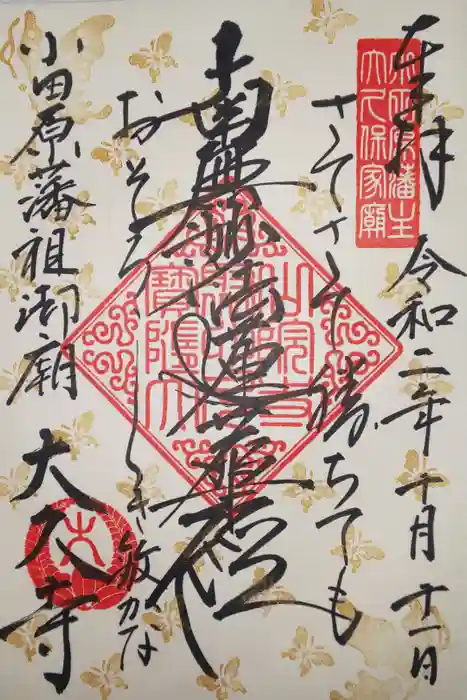 奉拝 令和二年十月十一日
小田原藩主
大久保家廟
さてさて勝ちても
南無妙法蓮華経
おそろしき敵かな
小田原藩祖御廟 大久寺
大